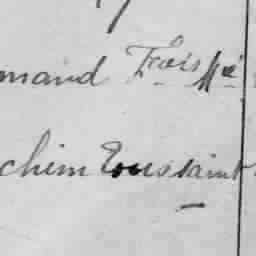 mand Frois
chim Toussaint